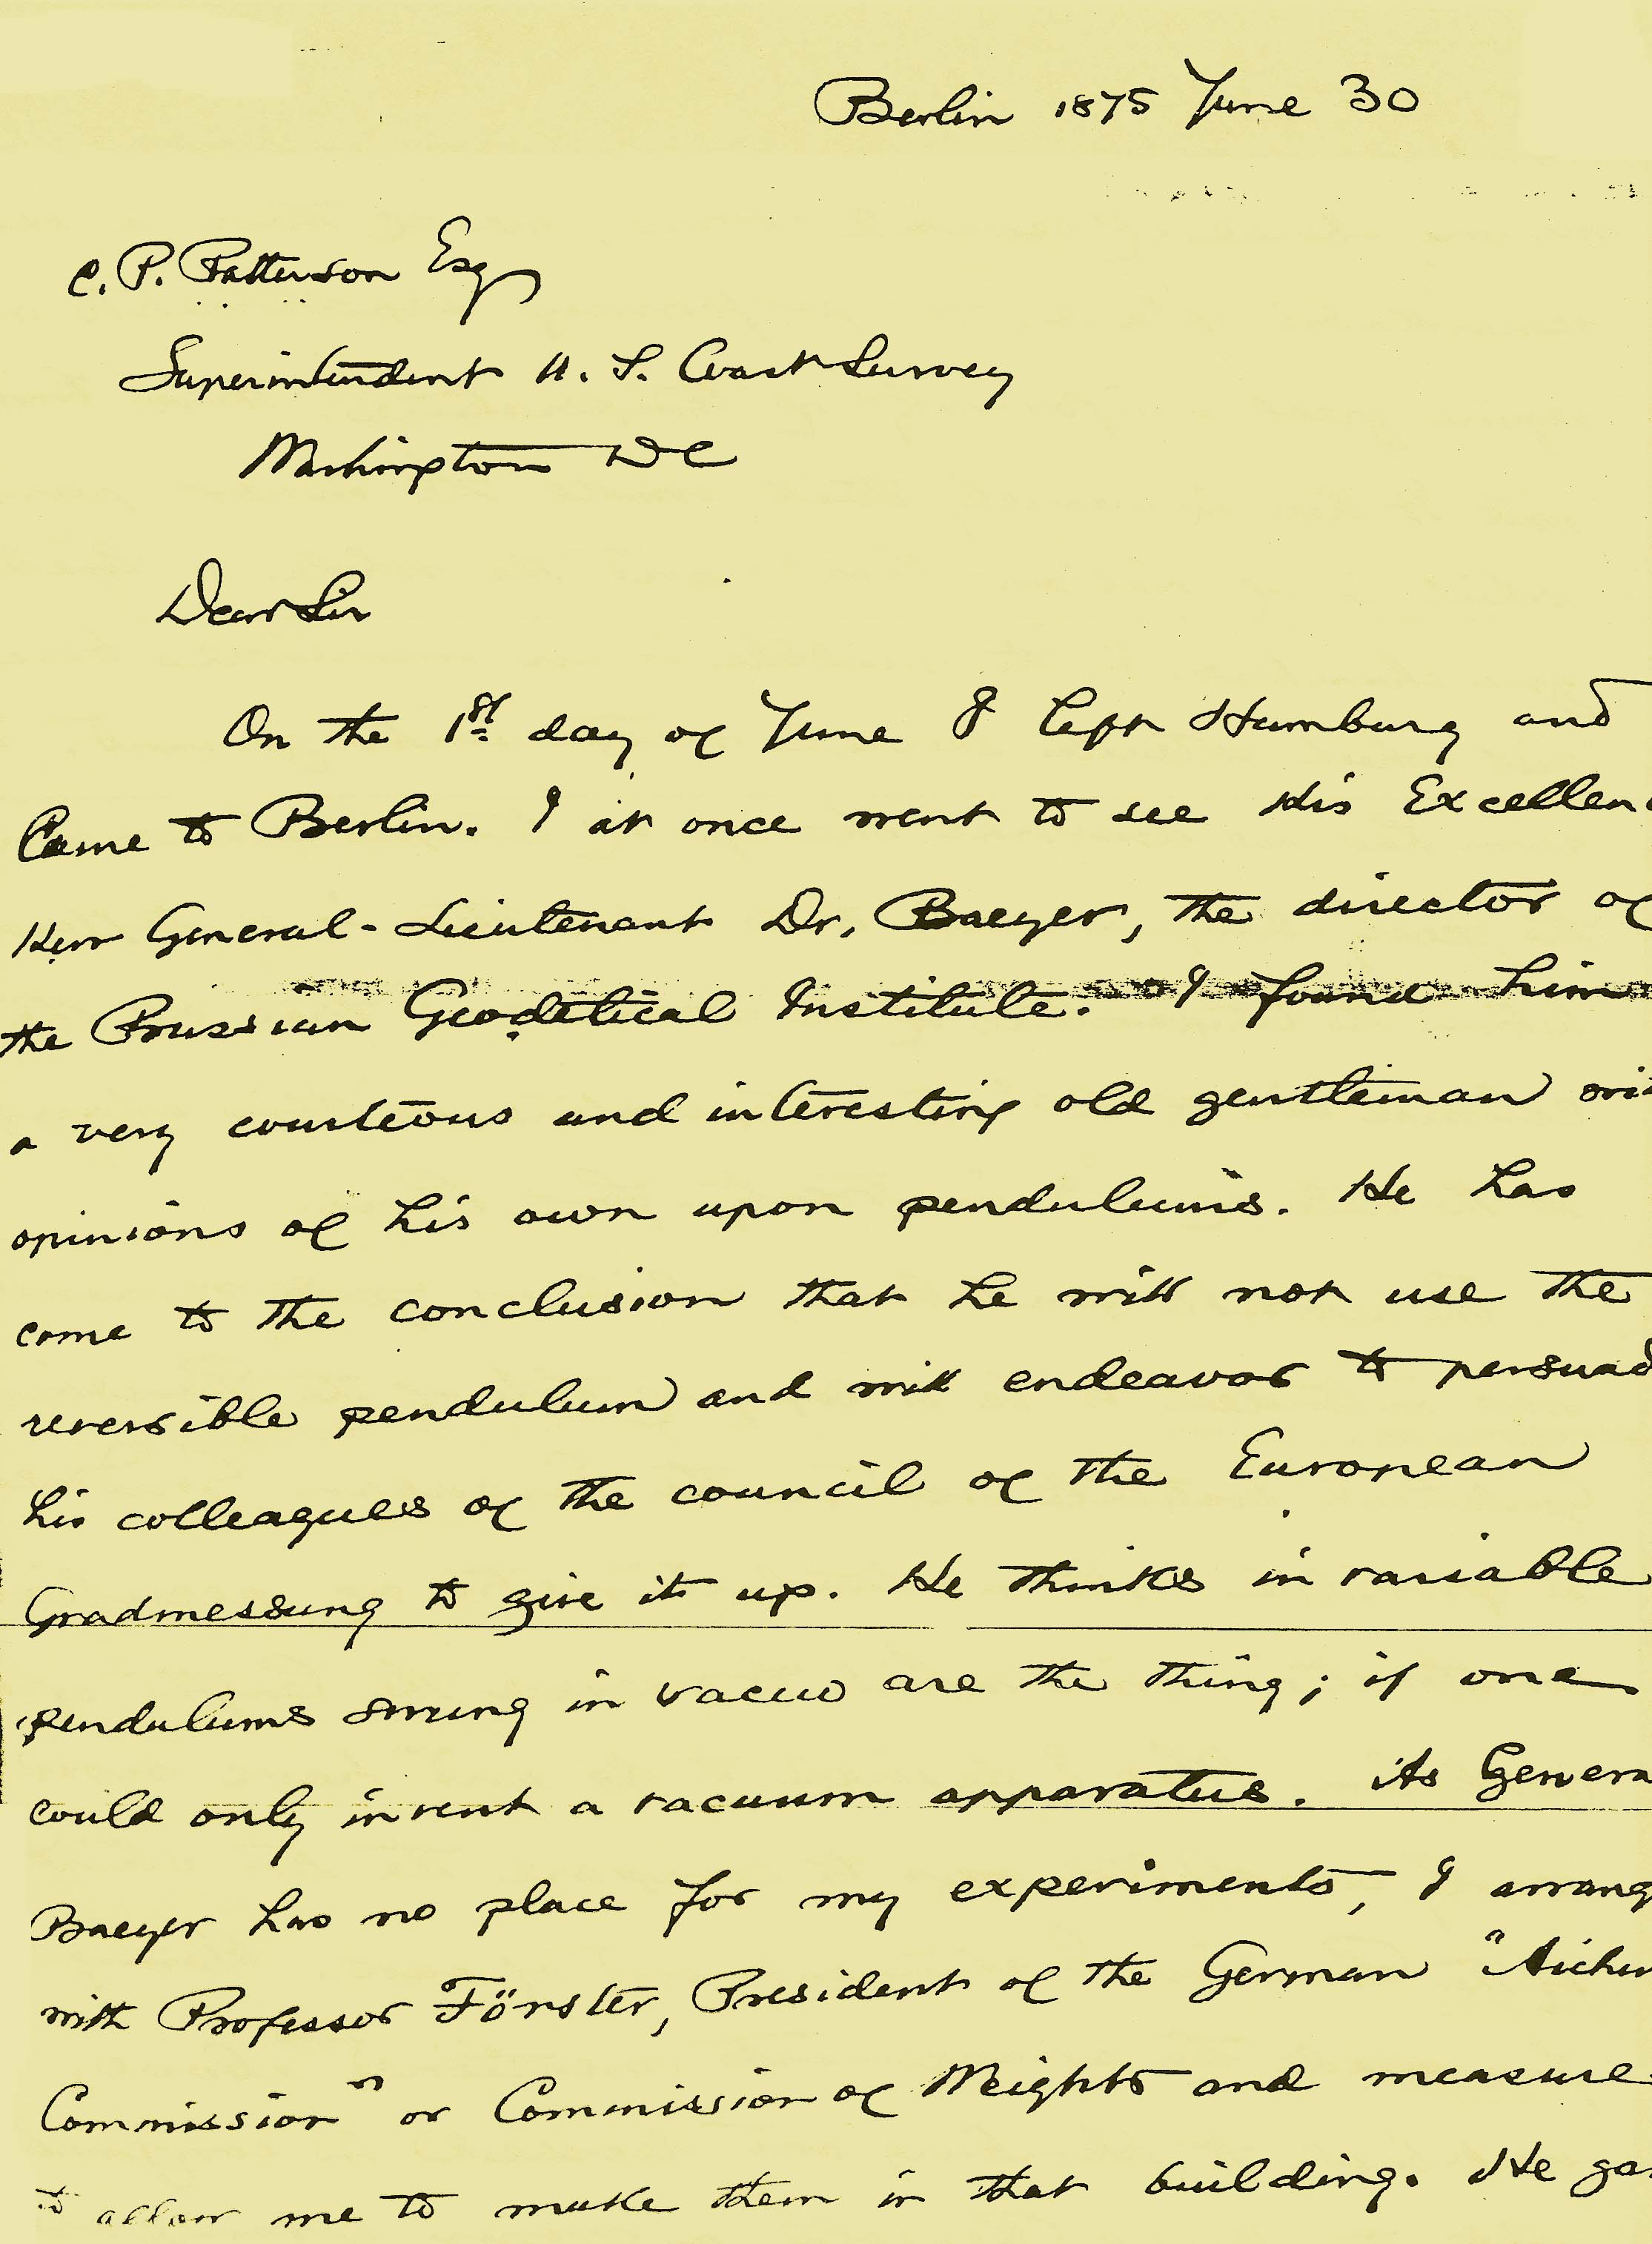 Berlin 1875 June 30
C. P. Patterson Esq
Superintendent U. S. Coast Survey
Washington DC
Dear Sir
On the 1st day of June I left Hamburg and
Came to Berlin. I at once went to see His Excellen
Herr General-Lieutenant Dr. Baeyer, the director of
the Prussian Geodetical Institute. I found him
a very courteous and interesting old gentleman wit
opinions of his own upon pendulums. He has
come to the conclusion that he will not use the
reversible pendulum and will endeavor to persuad
his colleagues of the council of the European
Gradmessung to give it up. He thinks invariable
pendulums swung in vacuo are the thing; if one
could only invent a vacuum apparatus. As Genera
Baeyer has no place for my experiments, I arrang
with Professor Förster, President of the German "Aichu
Commission" or Commission of Weights and measure
to allow me to make them in that building. He ga